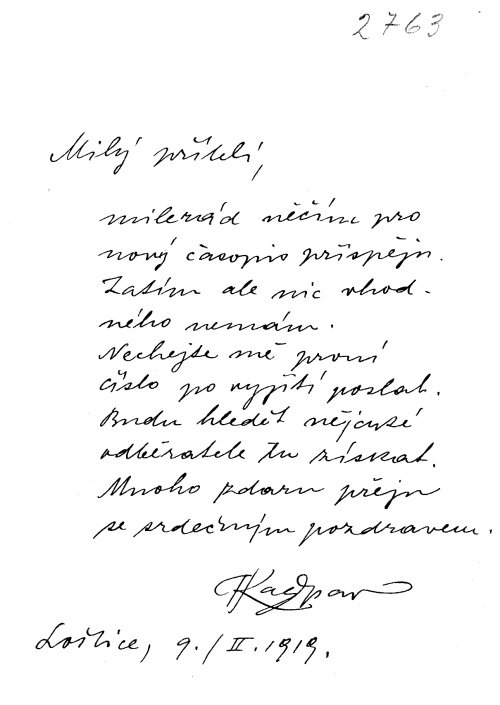 2763
Milý příteli,
milerád něčím pro
nový časopis přispěju.
Zatím ale nic vhod-
ného nemám.
Nechejte mě první
číslo po vyjítí poslat.
Budu hledět nějcusé
odběratele tu získat.
Mnoho zdaru přeju
se srdečným pozdravem.
Kašpar
Loštice, 9./II.1919.